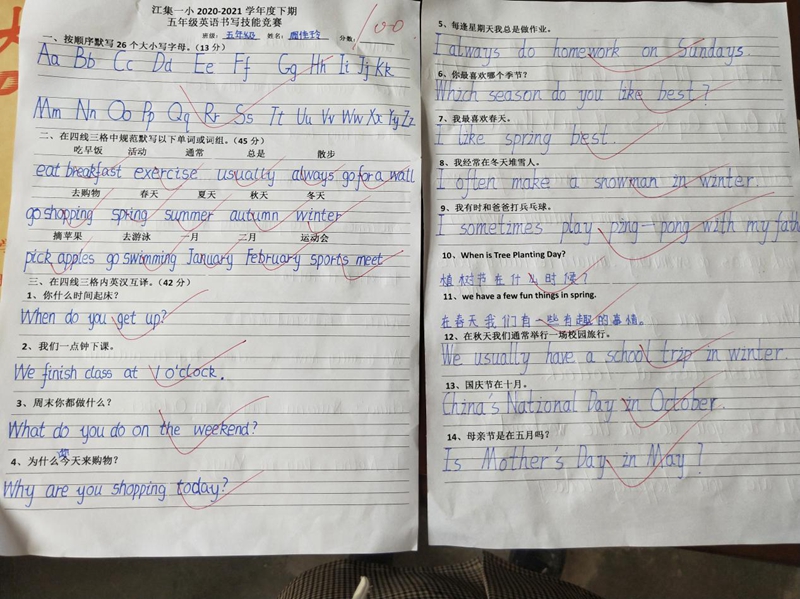 江集一小 2020-2021 学年度下期
五年级英语书写技能竞赛
班级: 五年级 姓名: 分数: 100
一、按顺序默写 26 个大小写字母。(13 分)
Aa Bb Cc Dd Ee Ff Gg Hh Ii Jj Kk
Mm Nn Oo Pp Qq Rr Ss Tt Uu Vv Ww Xx Yy Zz
二、在四线三格中规范默写以下单词或词组。(45 分)
吃早饭 活动 通常 总是 散步
eat breakfast exercise usually always go for a wall
去购物 春天 夏天 秋天 冬天
go shopping spring summer autumn winter
摘苹果 去游泳 一月 二月 运动会
pick apples go swimming January February sports meet
三、在四线三格内英汉互译。(42 分)
1、你什么时间起床?
When do you get up?
2、我们一点钟下课。
We finish class at 1 o'clock.
3、周末你都做什么?
What do you do on the weekend?
4、为什么今天来购物?
Why are you shopping today?
5、每逢星期天我总是做作业。
I always do homework on Sundays.
6、你最喜欢哪个季节?
Which season do you like best?
7、我最喜欢春天。
I like spring best.
8、我经常在冬天堆雪人。
I often make a snowman in winter.
9、我有时和爸爸打兵乓球。
I sometimes play ping-pong with my fath
10、When is Tree Planting Day?
植树节在什么时候?
11、we have a few fun things in spring.
在春天我们有一些有趣的事情。
12、在秋天我们通常举行一场校园旅行。
We usually have a school trip in winter.
13、国庆节在十月。
China's National Day in October.
14、母亲节是在五月吗?
Is Mother's Day in May?